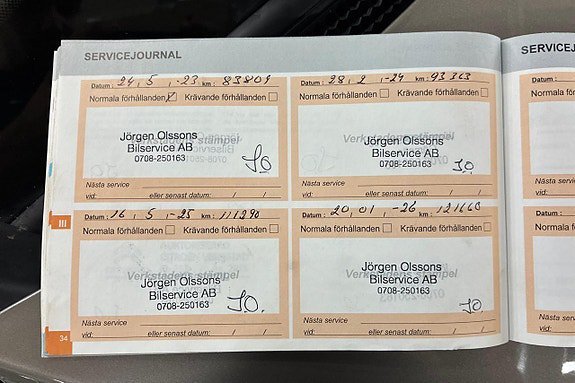 SERVICEJOURNAL
Datum: 24, 5, -23 km: 83809
Normala förhållanden Krävande förhållanden
Verkstadens stämpel
Jörgen Olssons
Bilservice AB
0708-250163
JO
Nästa service
vid: eller senast datum: / /
Datum: 28, 2, -24 km: 93363
Normala förhållanden Krävande förhållanden
Verkstadens stämpel
Jörgen Olssons
Bilservice AB
0708-250163
JO.
Nästa service
vid: eller senast datum: / /
III
Datum: 16, 5, -25 km: 111290
Normala förhållanden Krävande förhållanden
Verkstadens stämpel
Jörgen Olssons
Bilservice AB
0708-250163
JO.
Nästa service
vid: eller senast datum: / /
Datum: 20, 01, -26 km: 121660
Normala förhållanden Krävande förhållanden
Verkstadens stämpel
Jörgen Olssons
Bilservice AB
0708-250163
JO
Nästa service
vid: eller senast datum: / /
34
SERVICEJ
Datum:
Normala förh
Nästa service
vid:
Datum:
Normala förh
Nästa service
vid: